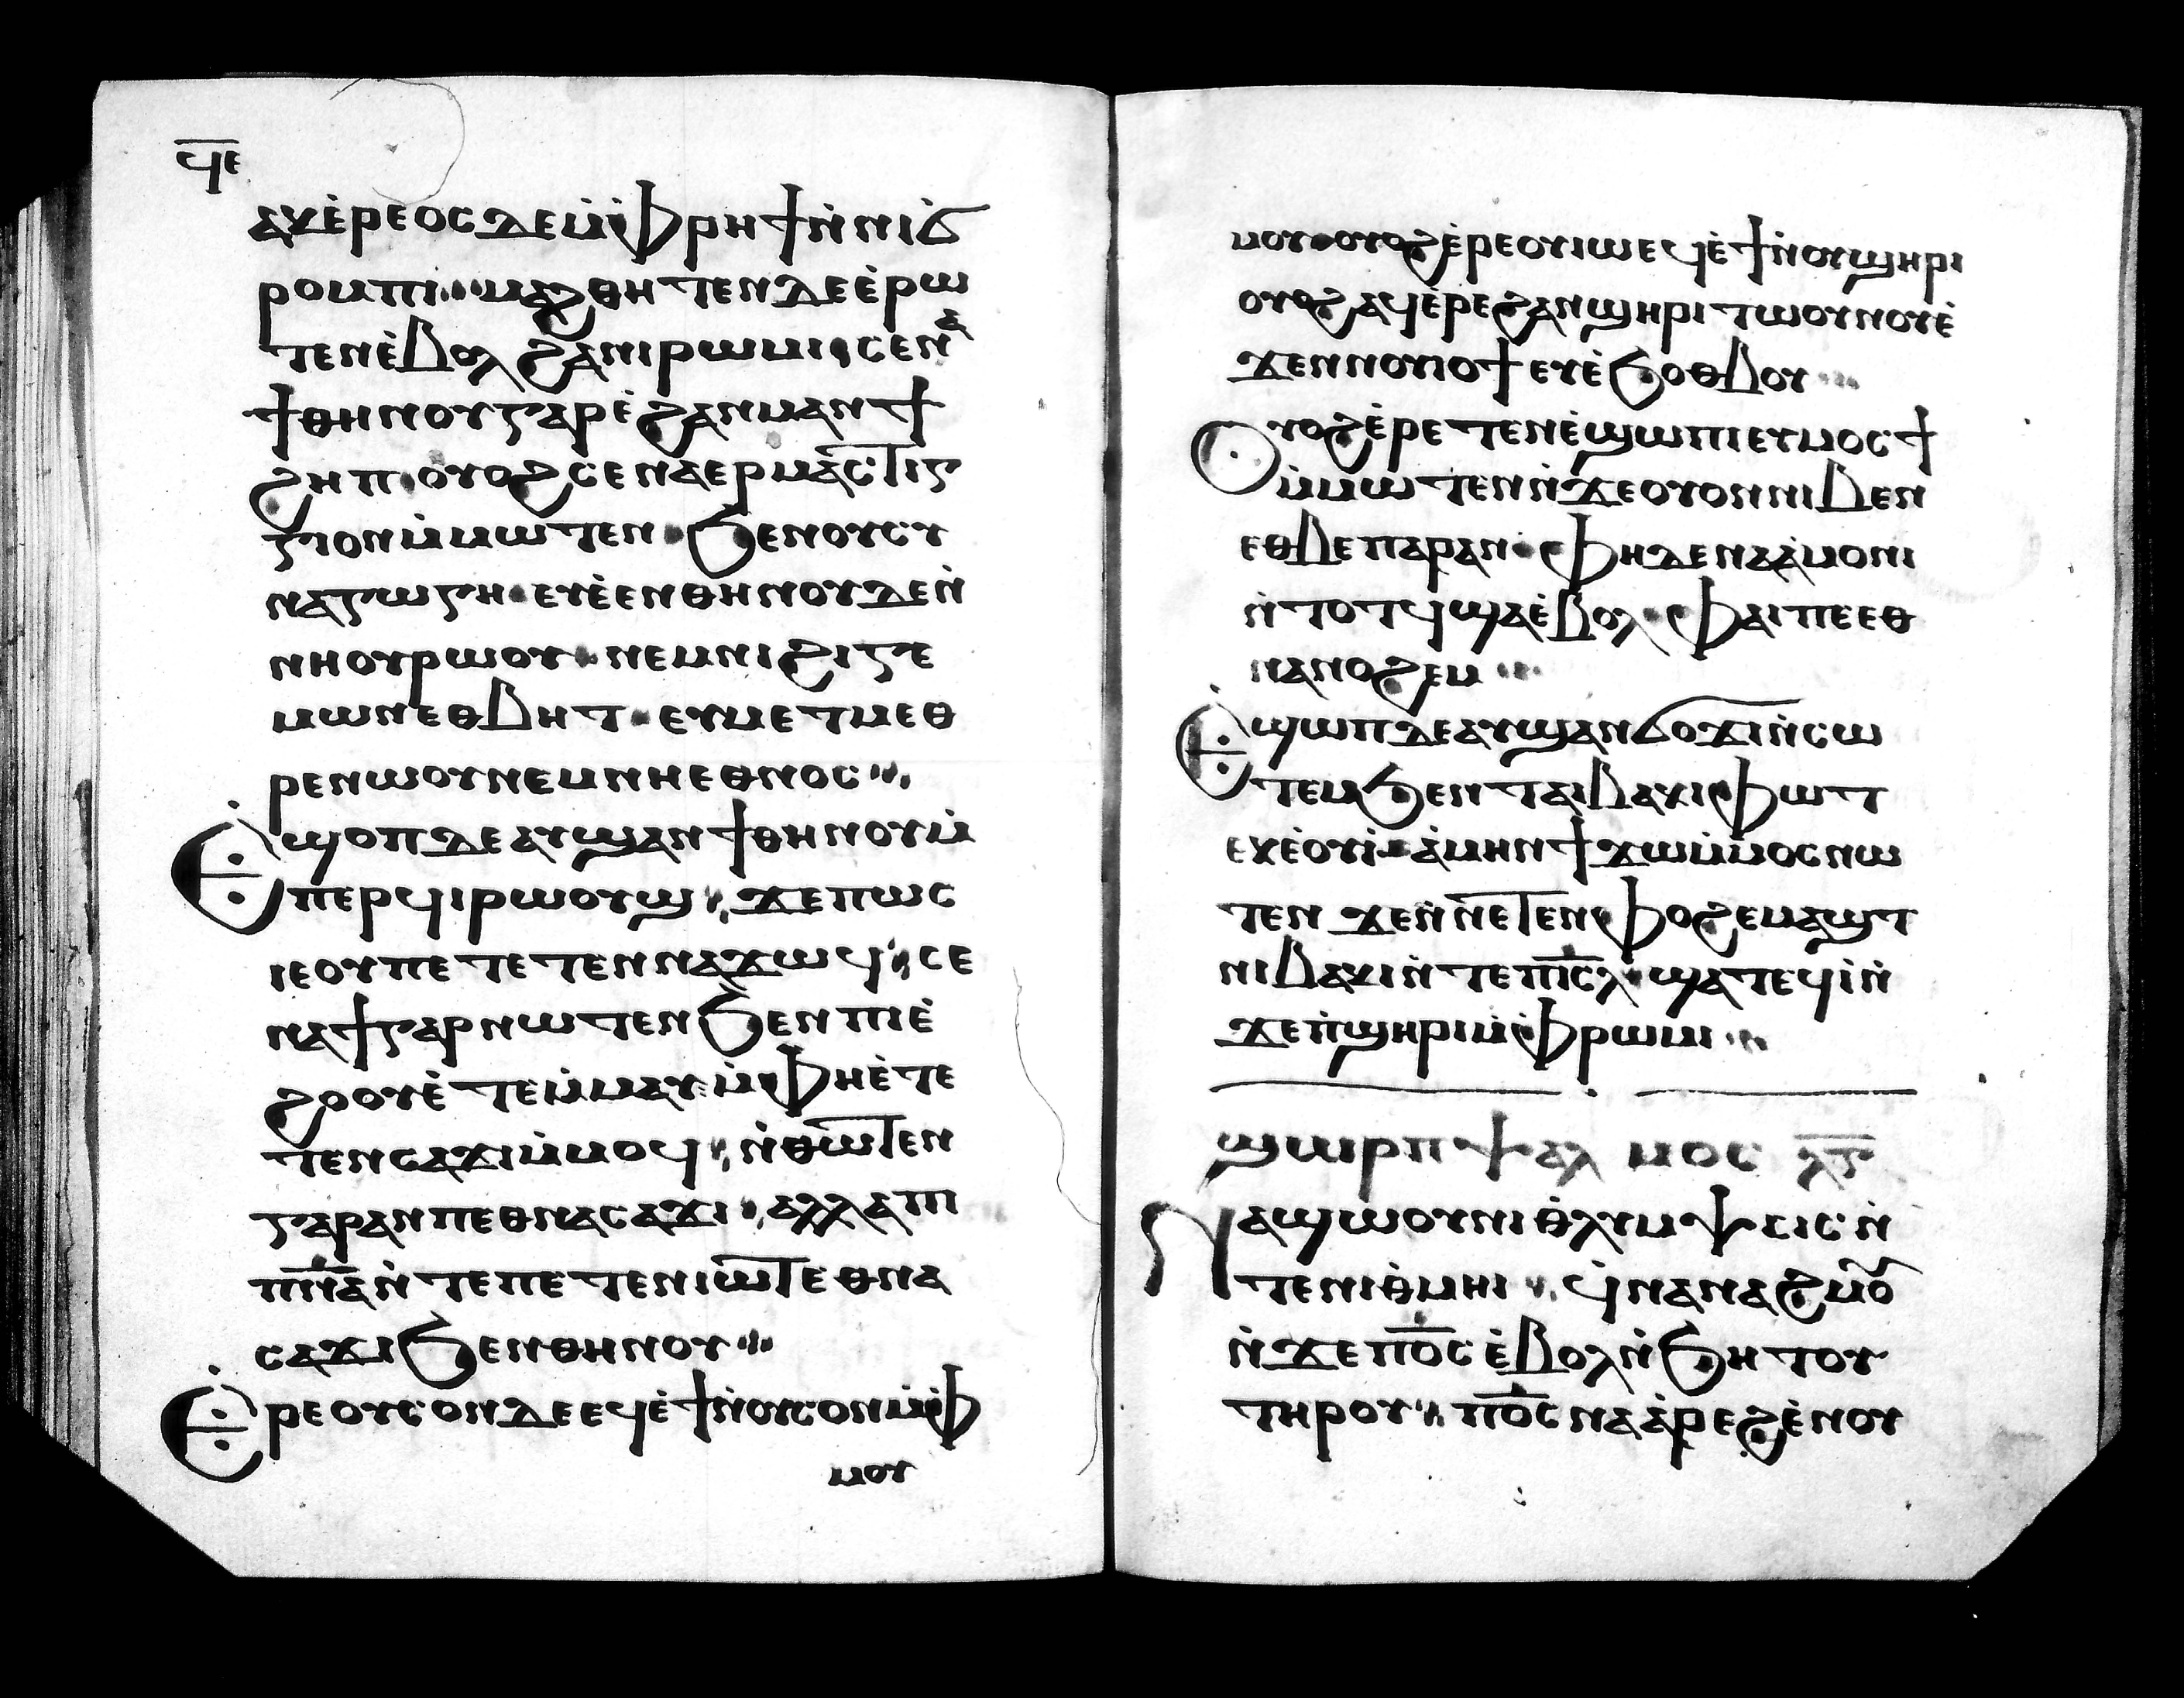 ϥ̅ⲉ̅
ⲁⲕⲉ̀ⲣⲉⲟⲥ ⲇⲉ ⲙ̀ⲫⲣⲏϯ ⲛ̀ⲛⲓϭ
ⲣⲟⲙⲡⲓ ⲙⲁϩⲑⲏⲧⲉⲛ ⲇⲉ ⲉ̀ⲣⲱ
ⲧⲉⲛ ⲉ̀ⲃⲟⲗ ϩⲁ ⲛⲓⲣⲱⲙⲓ ⲥⲉⲛⲁ
ϯⲑⲏⲛⲟⲩ ⲅⲁⲣ ⲉ̀ϩⲁⲛⲙⲁⲛϯ
ϩⲏⲡ ⲟⲩⲟϩ ⲥⲉⲛⲁⲉⲣⲙⲁⲥⲧⲓⲅ
ⲅⲓⲟⲛ ⲙ̀ⲙⲱⲧⲉⲛ ϧⲉⲛ ⲟⲩⲥⲩ
ⲛⲁⲅⲱⲅⲏ ⲉⲩⲉ̀ⲉⲛⲑⲏⲛⲟⲩ ⲇⲉ ⲛ̀
ⲛⲏⲟⲩⲣⲱⲟⲩ ⲛⲉⲙ ⲛⲓϩⲓⲅⲉ
ⲙⲱⲛ ⲉⲑⲃⲏⲧ ⲉⲩⲙⲉⲧⲙⲉⲑ
ⲣⲉ ⲛⲱⲟⲩ ⲛⲉⲙ ⲛⲏⲉⲑⲛⲟⲥ
Ⲉϣⲟⲡ ⲇⲉ ⲁⲩϣⲁⲛϯⲑⲏⲛⲟⲩ ⲙ̀
ⲡⲉⲣϥⲓⲣⲱⲟⲩϣ ϫⲉ ⲡⲱⲥ
ⲓⲉ ⲟⲩ ⲡⲉⲧⲉⲧⲉⲛⲛⲁϫⲱϥ ⲥⲉ
ⲛⲁϯ ⲅⲁⲣ ⲛⲱⲧⲉⲛ ϧⲉⲛ ⲡⲓⲉ̀
ϩⲟⲟⲩ ⲉ̀ⲧⲉⲙ̀ⲙⲁⲩ ⲙ̀ⲫⲏⲉ̀ⲧⲉ
ⲧⲉⲛⲥⲁϫⲓ ⲙ̀ⲙⲟϥ ⲛ̀ⲑⲱⲧⲉⲛ
ⲅⲁⲣ ⲁⲛ ⲡⲉⲑⲛⲁⲥⲁϫⲓ ⲁⲗⲗⲁ ⲡⲓ
ⲡ̅ⲛ̅ⲁ̅ ⲛ̀ⲧⲉ ⲡⲉⲧⲉⲛⲓⲱⲧ ⲉⲑⲛⲁ
ⲥⲁϫⲓ ϧⲉⲛ ⲑⲏⲛⲟⲩ
Ⲉⲣⲉ ⲟⲩⲥⲟⲛ ⲇⲉ ⲉϥⲉ̀ϯ ⲛ̀ⲟⲩⲥⲟⲛ ⲙ̀ⲫ
ⲙⲟⲩ
ⲙⲟⲩ ⲟⲩⲟϩ ⲉ̀ⲣⲉ ⲟⲩⲓⲱⲉϥⲉ̀ϯ ⲛ̀ⲟⲩϣⲏⲣⲓ
ⲟⲩⲟϩ ⲁϥⲉ̀ⲣⲉ ϩⲁⲛϣⲏⲣⲓ ⲧⲱⲟⲩⲛⲟⲩⲉ̀
ϫⲉⲛ ⲛⲟⲩⲓⲟϯ ⲉⲩⲉ̀ϧⲟⲑⲃⲟⲩ
Ⲟⲩⲟϩ ⲉ̀ⲣⲉⲧⲉⲛⲉ̀ϣⲱⲡⲓ ⲉⲩⲙⲟⲥϯ
ⲙ̀ⲙⲱⲧⲉⲛ ⲛ̀ϫⲉ ⲟⲩⲟⲛ ⲛⲓⲃⲉⲛ
ⲉⲑⲃⲉ ⲡⲁⲣⲁⲛ ⲫⲏ ⲇⲉ ⲛⲁⲁ̀ⲙⲟⲛⲓ
ⲛ̀ⲧⲟⲧϥ ϣⲁ ⲉ̀ⲃⲟⲗ ⲫⲁⲓ ⲡⲉ ⲉⲑ
ⲛⲁⲛⲟϩⲉⲙ
Ⲉϣⲱⲡ ⲇⲉ ⲁⲩϣⲁⲛϭⲟϫⲓ ⲛ̀ⲥⲱ
ⲧⲉⲙ ϧⲉⲛ ⲧⲁⲓⲃⲁⲕⲓ ⲫⲱⲧ
ⲉⲕⲉ̀ⲟⲩⲓ̀ ⲁ̀ⲙⲏⲛ ϯϫⲱ ⲙ̀ⲙⲟⲥ ⲛⲱ
ⲧⲉⲛ ϫⲉ ⲛ̀ⲛⲉⲧⲉⲛⲫⲟϩ ⲉⲙⲁϣⲧ
ⲛⲓⲃⲁⲕⲓ ⲛ̀ⲧⲉ ⲡ̅ⲓ̅ⲥ̅ⲗ̅ ϣⲁⲧⲉϥⲓ̀ ⲛ̀
ϫⲉ ⲡ̀ϣⲏⲣⲓ ⲙ̀ⲫⲣⲱⲙⲓ
ϣⲱⲣⲡ ⲯⲁⲗⲙⲟⲥ ⲗ̅ⲅ̅
Ⲛⲁϣⲱⲟⲩ ⲛⲓⲑ̀ⲗⲩⲙⲯⲓⲥⲓⲥ ⲛ̀
ⲧⲉ ⲛⲓⲑ̀ⲙⲏⲓ ϥ̀ⲛⲁⲛⲁϩⲙⲟⲩ
ⲛ̀ϫⲉ ⲡ̅ⲟ̅ⲥ̅ ⲉ̀ⲃⲟⲗ ⲛ̀ϧⲏⲧⲟⲩ
ⲧⲏⲣⲟⲩ ⲡ̅ⲟ̅ⲥ̅ ⲛⲁⲁ̀ⲣⲉϩ ⲉ̀ⲛⲟⲩ